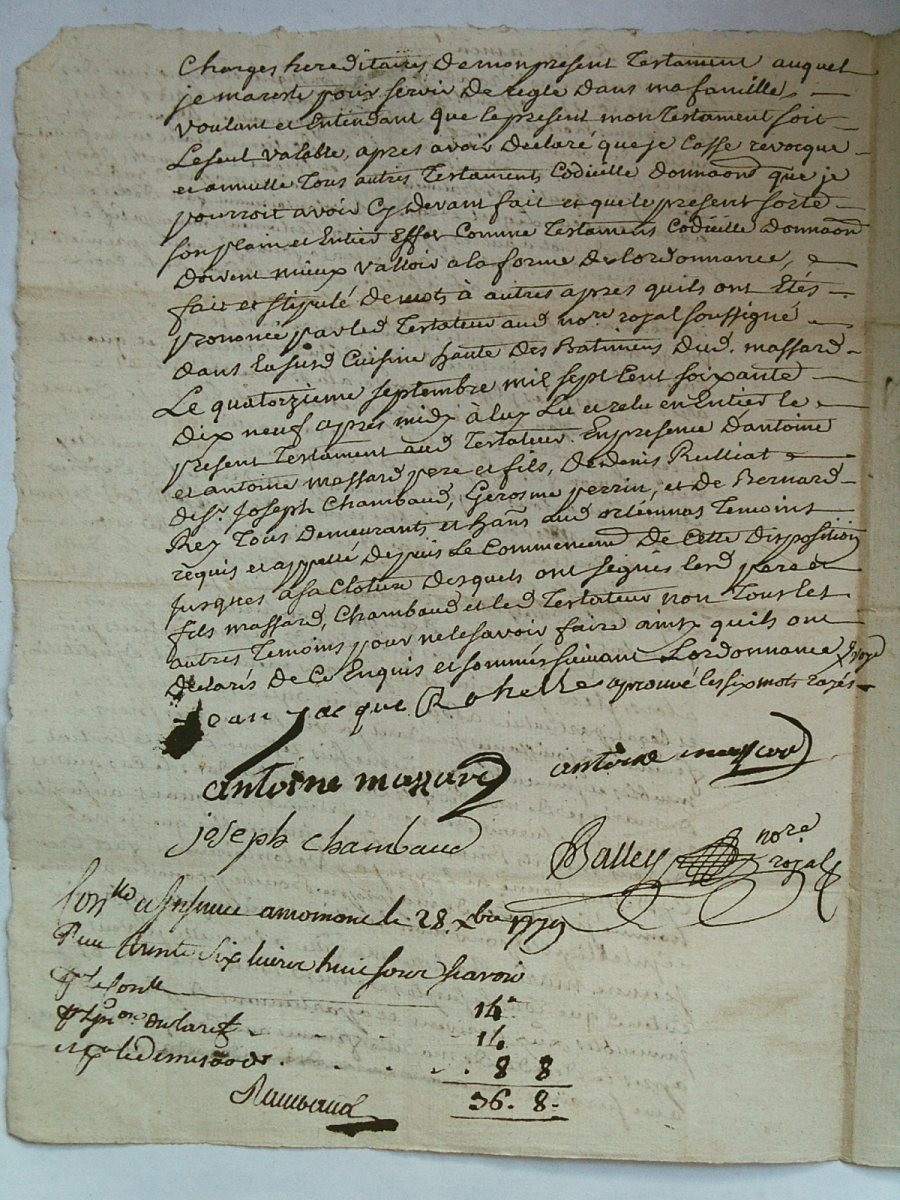 Charges hereditaires de mon present Testament auquel
je mareste pour servir de regle dans ma famille,
voulant et Entendant que le present mon Testament soit
Le seul valable, apres avoir declaré que je Casse revocque
et annulle Tous autres Testament, Codicille donnaõns que je
pourroit avoir Cy devant fait et que le present sorte
son plain et Entier Effet Comme Testament Codicille donnaõn
doivent mieux valloir a la forme de lordonnance,
fait et stipulé de mots à autres apres quils ont Etés
prononcé par led Testateur aud no.re royal soussigné
dans la susd Cuisine haute des Batimens dud. massard
Le quatorzieme septembre mil sept Cent soixante
dix neuf apres midy à luy Lu et relu en Entier le
present Testament aud Testateur. En presence d'antoine
et antoine massard pere et fils, de denis Rulliat
de s.r Joseph Chambaud, Gerosme perrin, et de Bernard
Rey Tous demeurants et hãns aud Temoins
requis et appellé depuis Le Commencemt de Cette disposition
jusques a sa Cloture desquels ont signés lesd pere et
fils massard, Chambaud et led Testateur non Tous les
autres Temoins pour ne le savoir faire ainsy quils ont
declarés de Ce Enquis et sommés suivant Lordonnance
aprouvé les six mots rayés
jean jacque Rohelle
antoine massard antoine massard
joseph chambaud
Balley no.re royal
Con.llé a le 28. Xbre 1779
Reçu trente six livres huit sous scavoir
p.r le Con.lle 14"
14
8 8
36. 8.
Rambaud